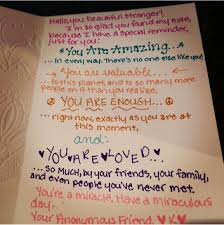 Hello, you beautiful stranger!
I'm so glad you found my note,
because I have a special reminder,
just for you:
You Are Amazing...
...in every way. There's no one else like you!
→ You are valuable...
...to this planet, and to so many more
people on it than you realize.
☮ YOU ARE ENOUGH... ☮
...right now, exactly as you are at
this moment,
and:
♥YOU♥ARE♥LOVED...
...so much, by your friends, your family,
and even people you've never met.
You're a miracle, Have a miraculous
day!
Your Anonymous Friend ♥K♥